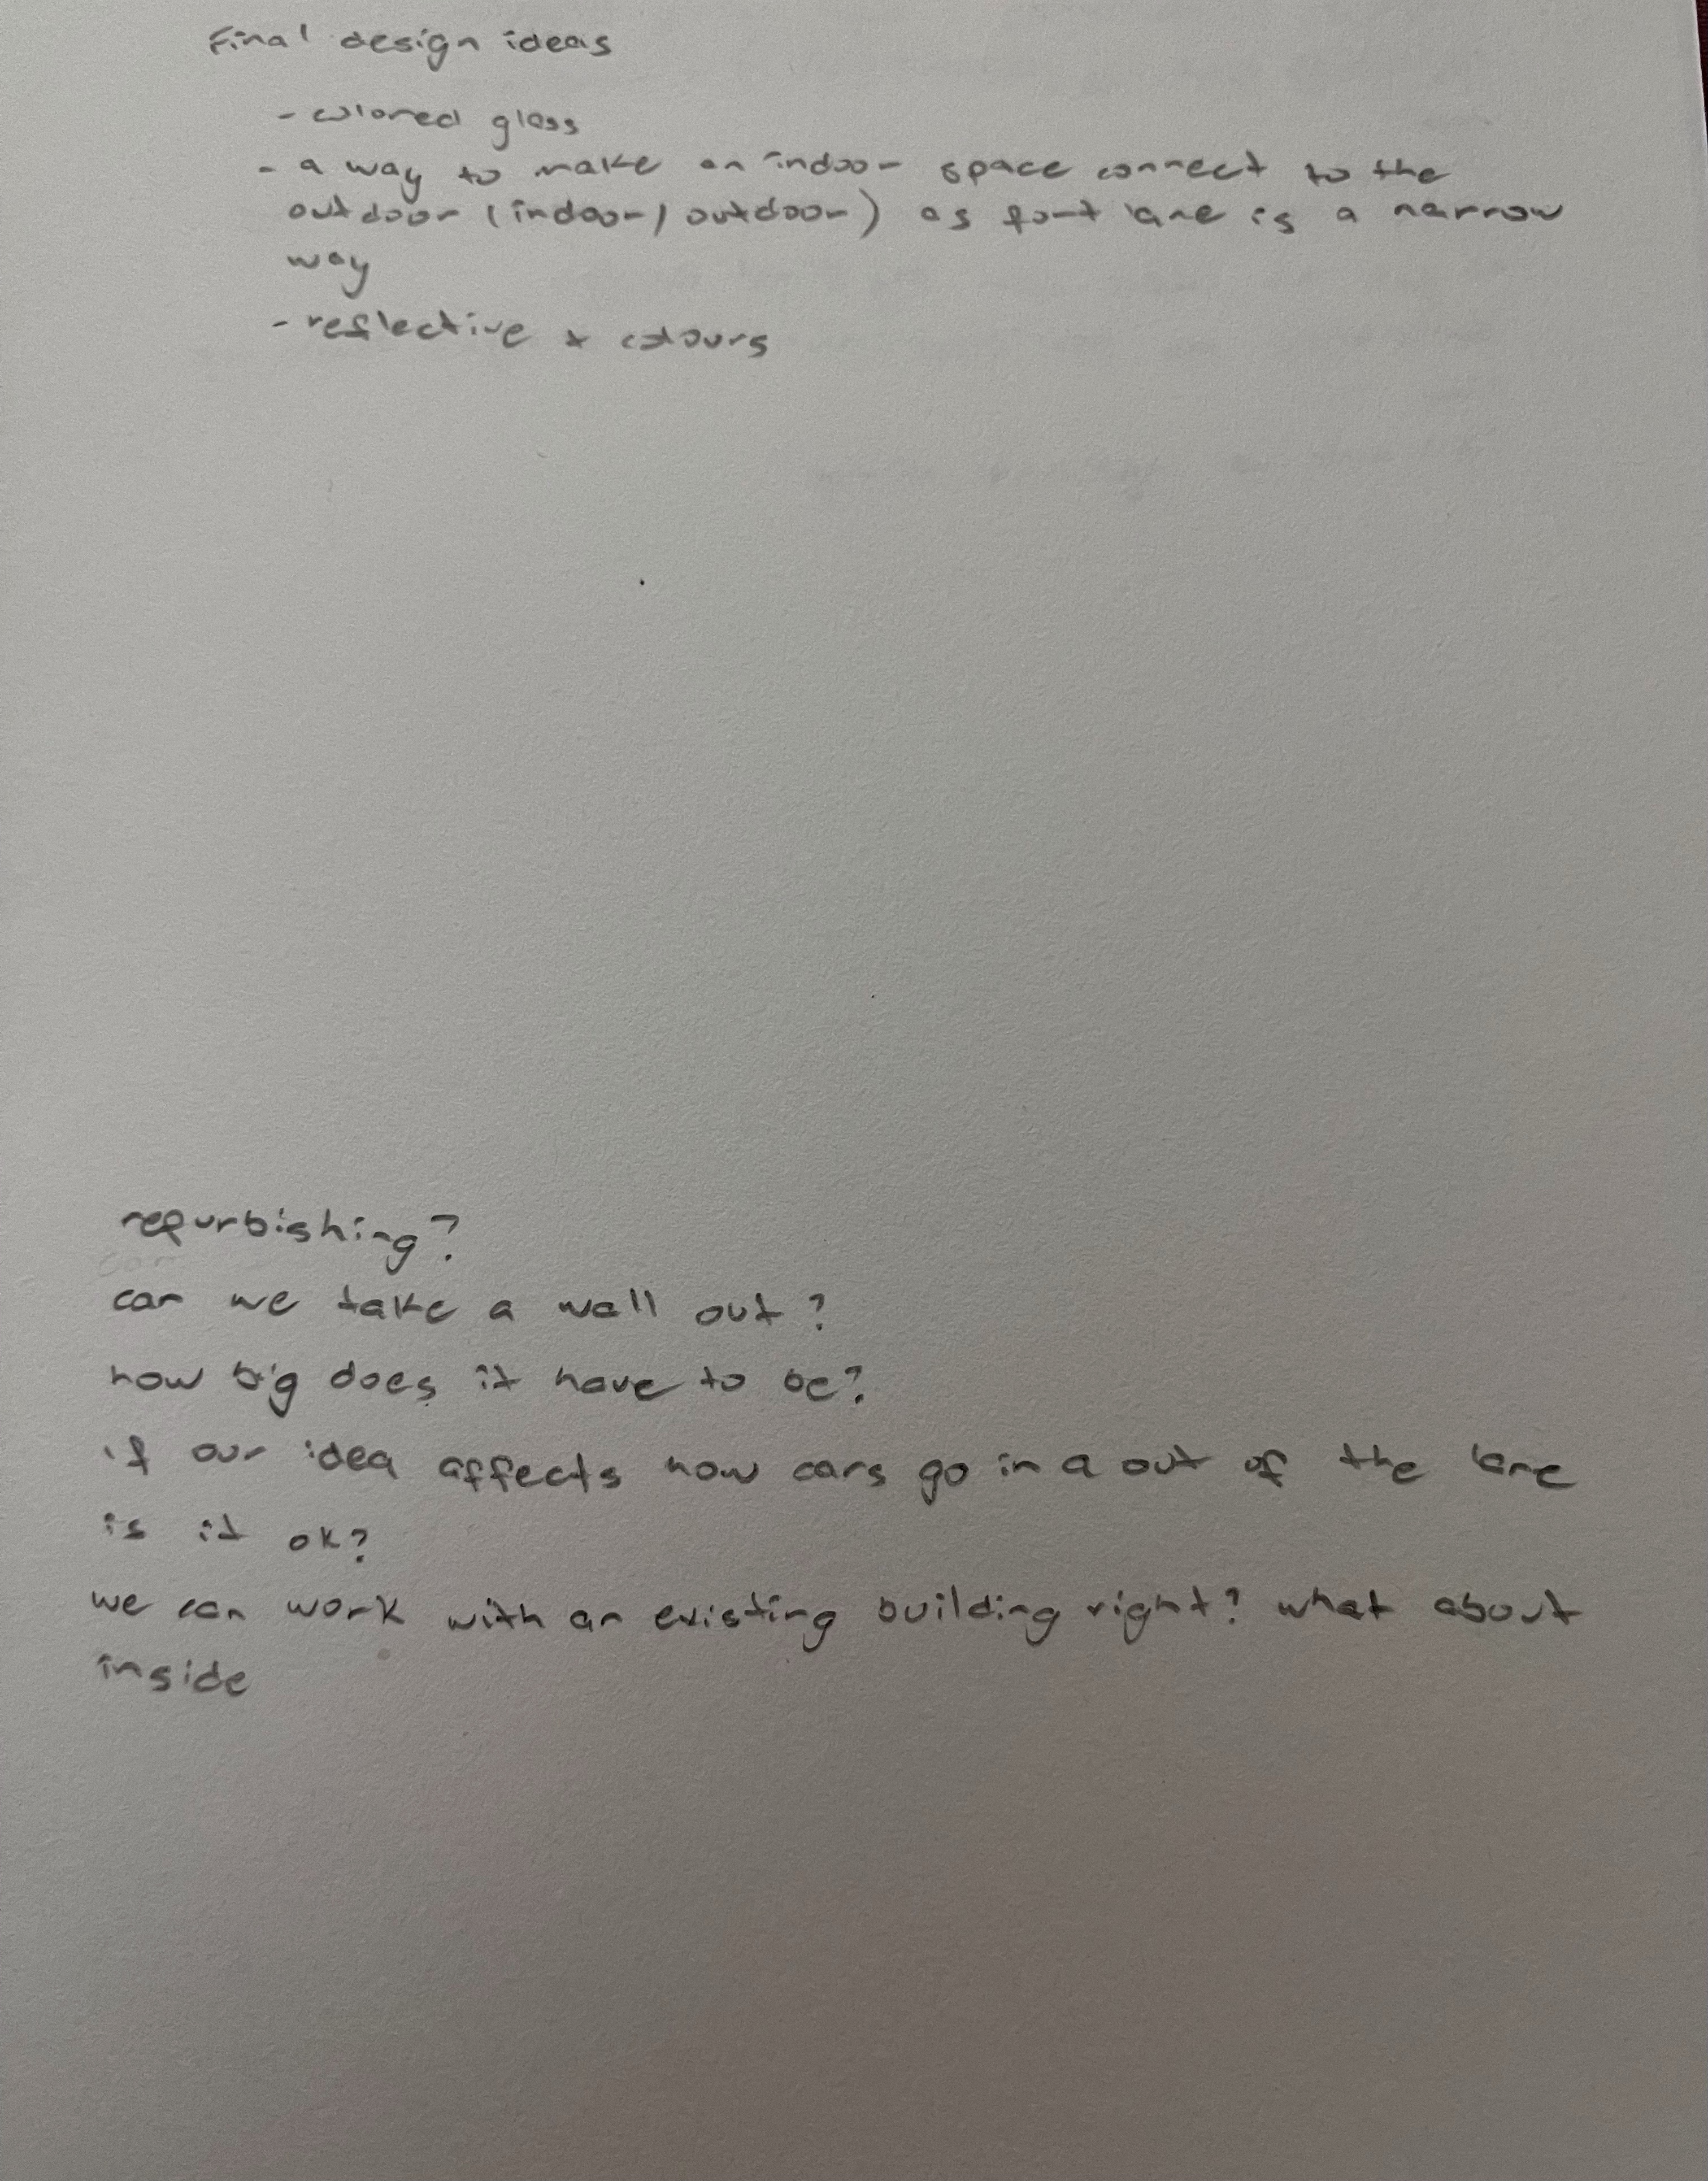 Final design ideas
- colored glass
- a way to make an indoor space connect to the
outdoor (indoor/outdoor) as fort lane is a narrow
way
- reflective + colours
refurbishing?
can we take a wall out?
how big does it have to be?
if our idea affects how cars go in a out of the lane
is it ok?
we can work with an existing building right? what about
inside